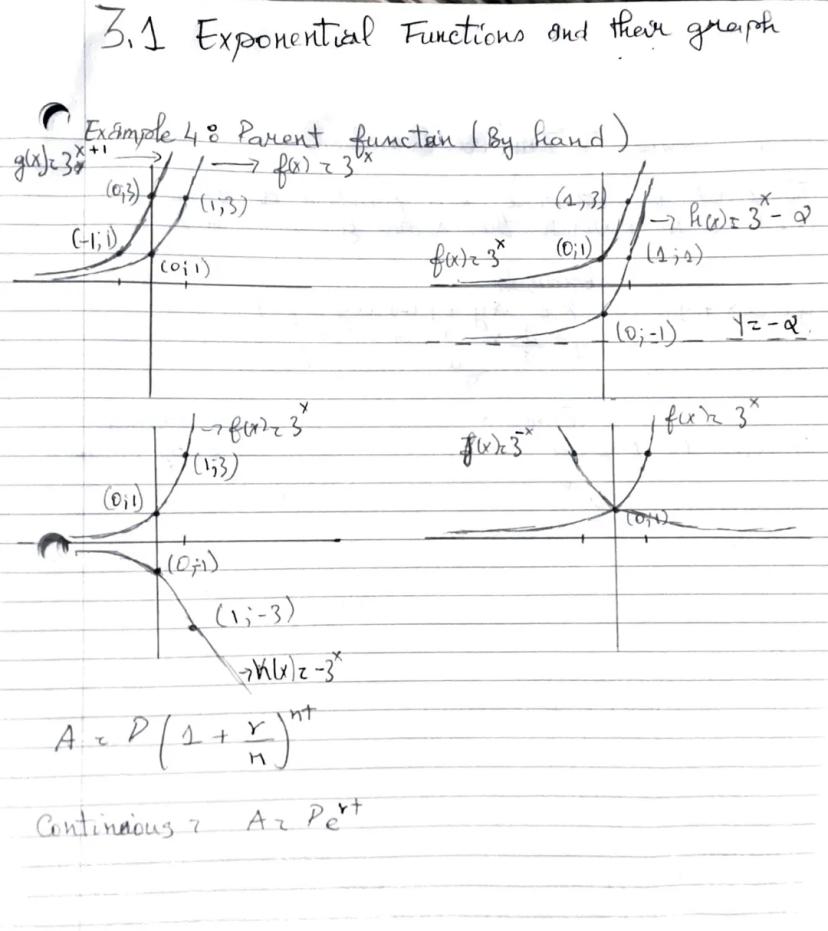 3.1 Exponential Functions and their graph
Example 4: Parent functain (By hand)
g(x)=3^x+1
→ f(x) = 3^x
(0;3)
(1;3)
(-1;1)
(0;1)
(1;3)
→ h(x)= 3^x - 2
f(x)= 3^x
(0;1)
(1;1)
(0;-1)
y=-2
→ f(x)= 3^x
(1;3)
(0;1)
(0;-1)
(1;-3)
→ K(x)= -3^x
f(x)= 3^x
j(x)=3^-x
(0;1)
A = P(1 + r/n)^nt
Continuous = A= Pe^rt